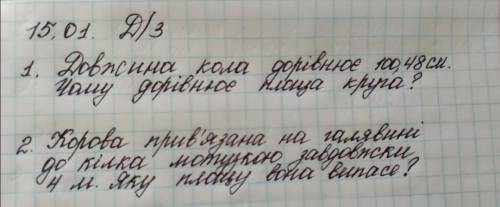 15.01. Д/З
1. Довжина кола дорівнює 100,48 см.
Чому дорівнює площа круга?
2. Корова прив'язана на галявині
до кілка мотузкою завдовжки
4 м. Яку площу вона випасе?